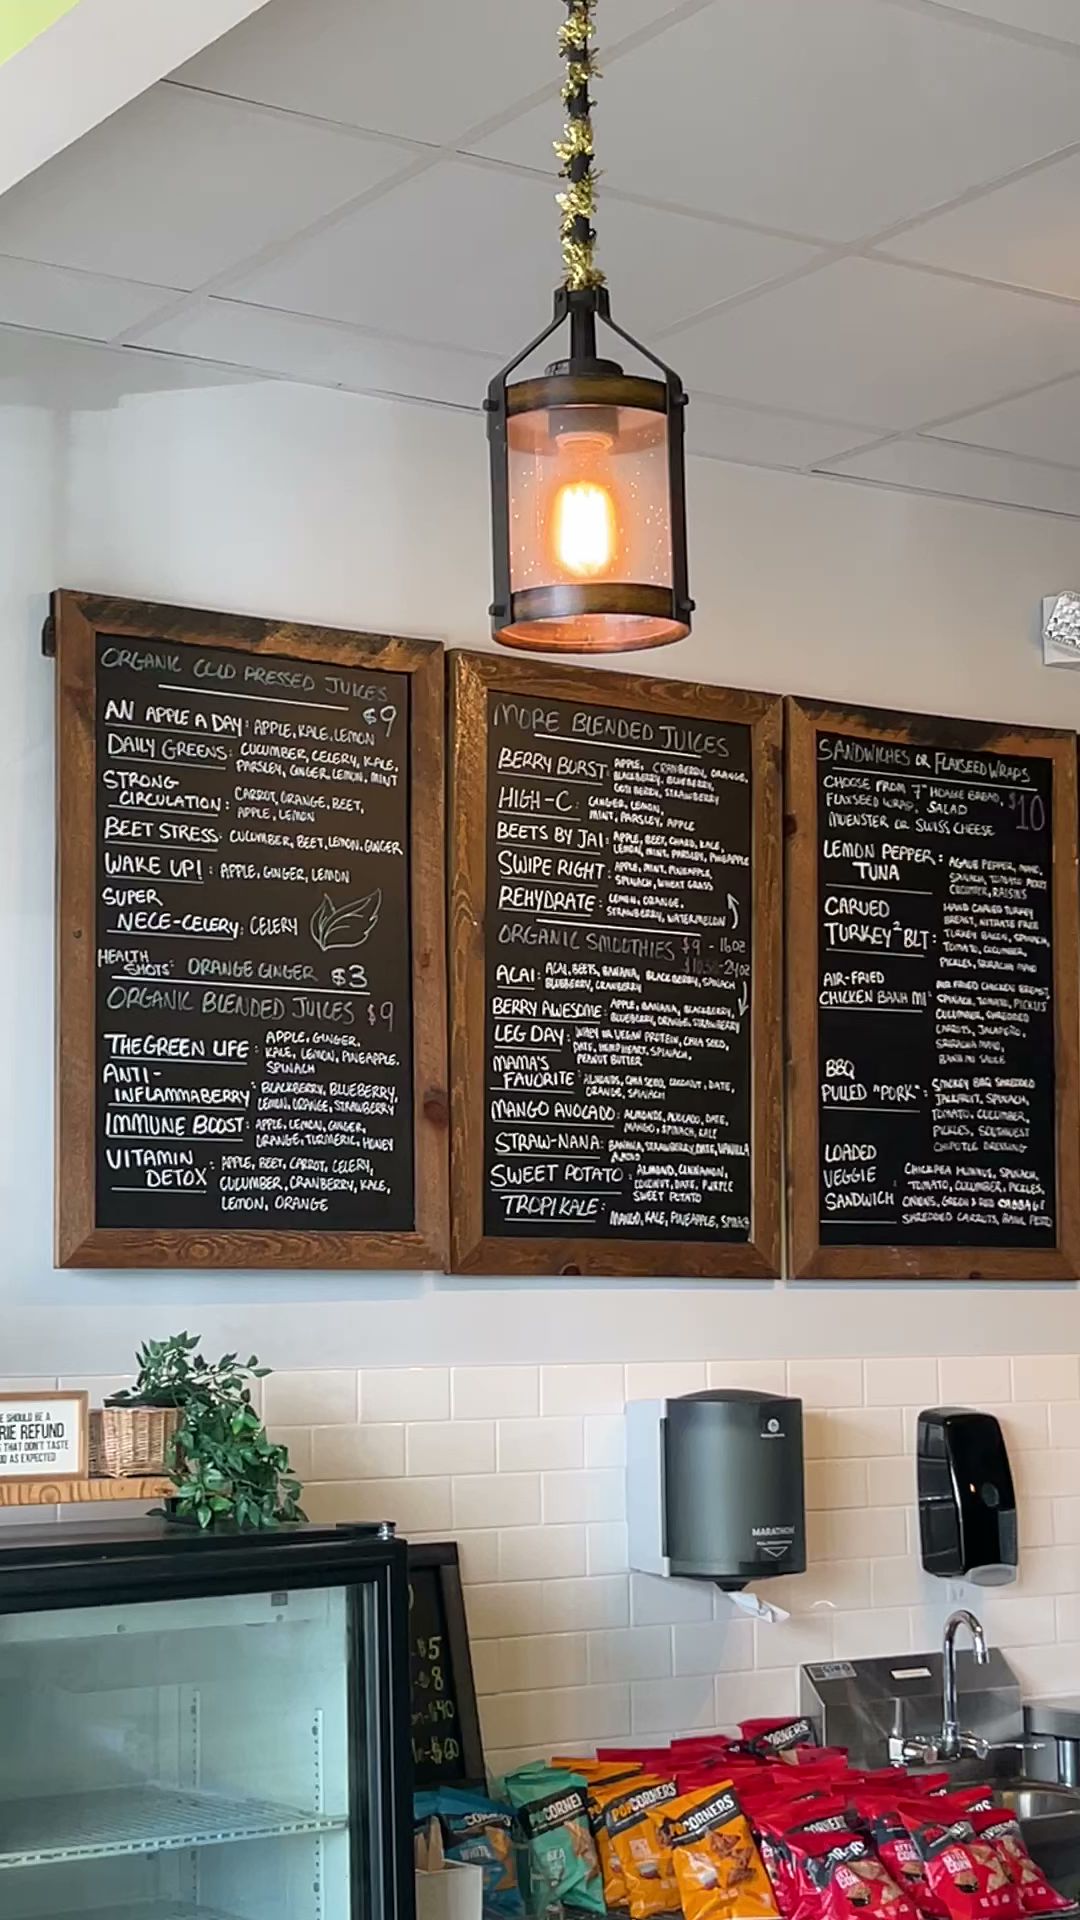 ORGANIC COLD PRESSED JUICES
$9
AN APPLE A DAY: APPLE, KALE, LEMON
DAILY GREENS: CUCUMBER, CELERY, KALE,
PARSLEY, GINGER, LEMON, MINT
STRONG
CIRCULATION: CARROT, ORANGE, BEET,
APPLE, LEMON
BEET STRESS: CUCUMBER, BEET, LEMON, GINGER
WAKE UP!: APPLE, GINGER, LEMON
SUPER
NECE-CELERY: CELERY
HEALTH
SHOTS: ORANGE GINGER $3
ORGANIC BLENDED JUICES $9
THE GREEN LIFE: APPLE, GINGER,
KALE, LEMON, PINEAPPLE,
SPINACH
ANTI-
INFLAMMABERRY: BLACKBERRY, BLUEBERRY,
LEMON, ORANGE, STRAWBERRY
IMMUNE BOOST: APPLE, LEMON, GINGER,
ORANGE, TURMERIC, HONEY
VITAMIN
DETOX: APPLE, BEET, CARROT, CELERY,
CUCUMBER, CRANBERRY, KALE,
LEMON, ORANGE
MORE BLENDED JUICES
BERRY BURST: APPLE, CRANBERRY, ORANGE,
BLACKBERRY, BLUEBERRY,
GOJI BERRY, STRAWBERRY
HIGH-C: GINGER, LEMON,
MINT, PARSLEY, APPLE
BEETS BY JAI: APPLE, BEET, CHARD, KALE,
LEMON, MINT, PARSLEY, PINEAPPLE
SWIPE RIGHT: APPLE, MINT, PINEAPPLE,
SPINACH, WHEAT GRASS
REHYDRATE: LEMON, ORANGE,
STRAWBERRY, WATERMELON
ORGANIC SMOOTHIES $9 - 16oz
24oz
ACAI: ACAI, BEETS, BANANA, BLACKBERRY, SPINACH
BLUEBERRY, CRANBERRY
BERRY AWESOME: APPLE, BANANA, BLACKBERRY,
BLUEBERRY, ORANGE, STRAWBERRY
LEG DAY: WHEY OR VEGAN PROTEIN, CHIA SEED,
DATE, HEMPHEART, SPINACH,
PEANUT BUTTER
MAMA'S
FAVORITE: ALMONDS, CHIA SEED, COCONUT, DATE,
ORANGE, SPINACH
MANGO AVOCADO: ALMONDS, AVOCADO, DATE,
MANGO, SPINACH, KALE
STRAW-NANA: BANANA, STRAWBERRY, DATE, VANILLA
SWEET POTATO: ALMOND, CINNAMON,
COCONUT, DATE, PURPLE
SWEET POTATO
TROPIKALE: MANGO, KALE, PINEAPPLE, SPINACH
SANDWICHES OR FLAXSEED WRAPS
CHOOSE FROM 7" HOAGIE BREAD, $10
FLAXSEED WRAP, SALAD
MUENSTER OR SWISS CHEESE
LEMON PEPPER: AGAVE PEPPER, MAYO,
TUNA SPINACH, TOMATO, PICKLES
CUCUMBER, RAISINS
CARVED HAND CARVED TURKEY
BREAST, NITRATE FREE
TURKEY² BLT: TURKEY BACON, SPINACH,
TOMATO, CUCUMBER,
PICKLES, SRIRACHA MAYO
AIR-FRIED AIR FRIED CHICKEN BREAST,
CHICKEN BANH MI: SPINACH, TOMATO, PICKLES
CUCUMBER, SHREDDED
CARROTS, JALAPEÑO,
SRIRACHA MAYO,
BANH MI SAUCE
BBQ
PULLED "PORK": SMOKEY BBQ SHREDDED
JACKFRUIT, SPINACH,
TOMATO, CUCUMBER,
PICKLES, SOUTHWEST
CHIPOTLE DRESSING
LOADED
VEGGIE CHICKPEA HUMMUS, SPINACH,
TOMATO, CUCUMBER, PICKLES,
SANDWICH ONIONS, GREEN & RED CABBAGE
SHREDDED CARROTS, BASIL PESTO
E SHOULD BE A
RIE REFUND
THAT DON'T TASTE
AS EXPECTED
MARATHON
$5
8
40
$60
POPCORNERS
POPCORNERS
POPCORNERS
WHITE
SEA